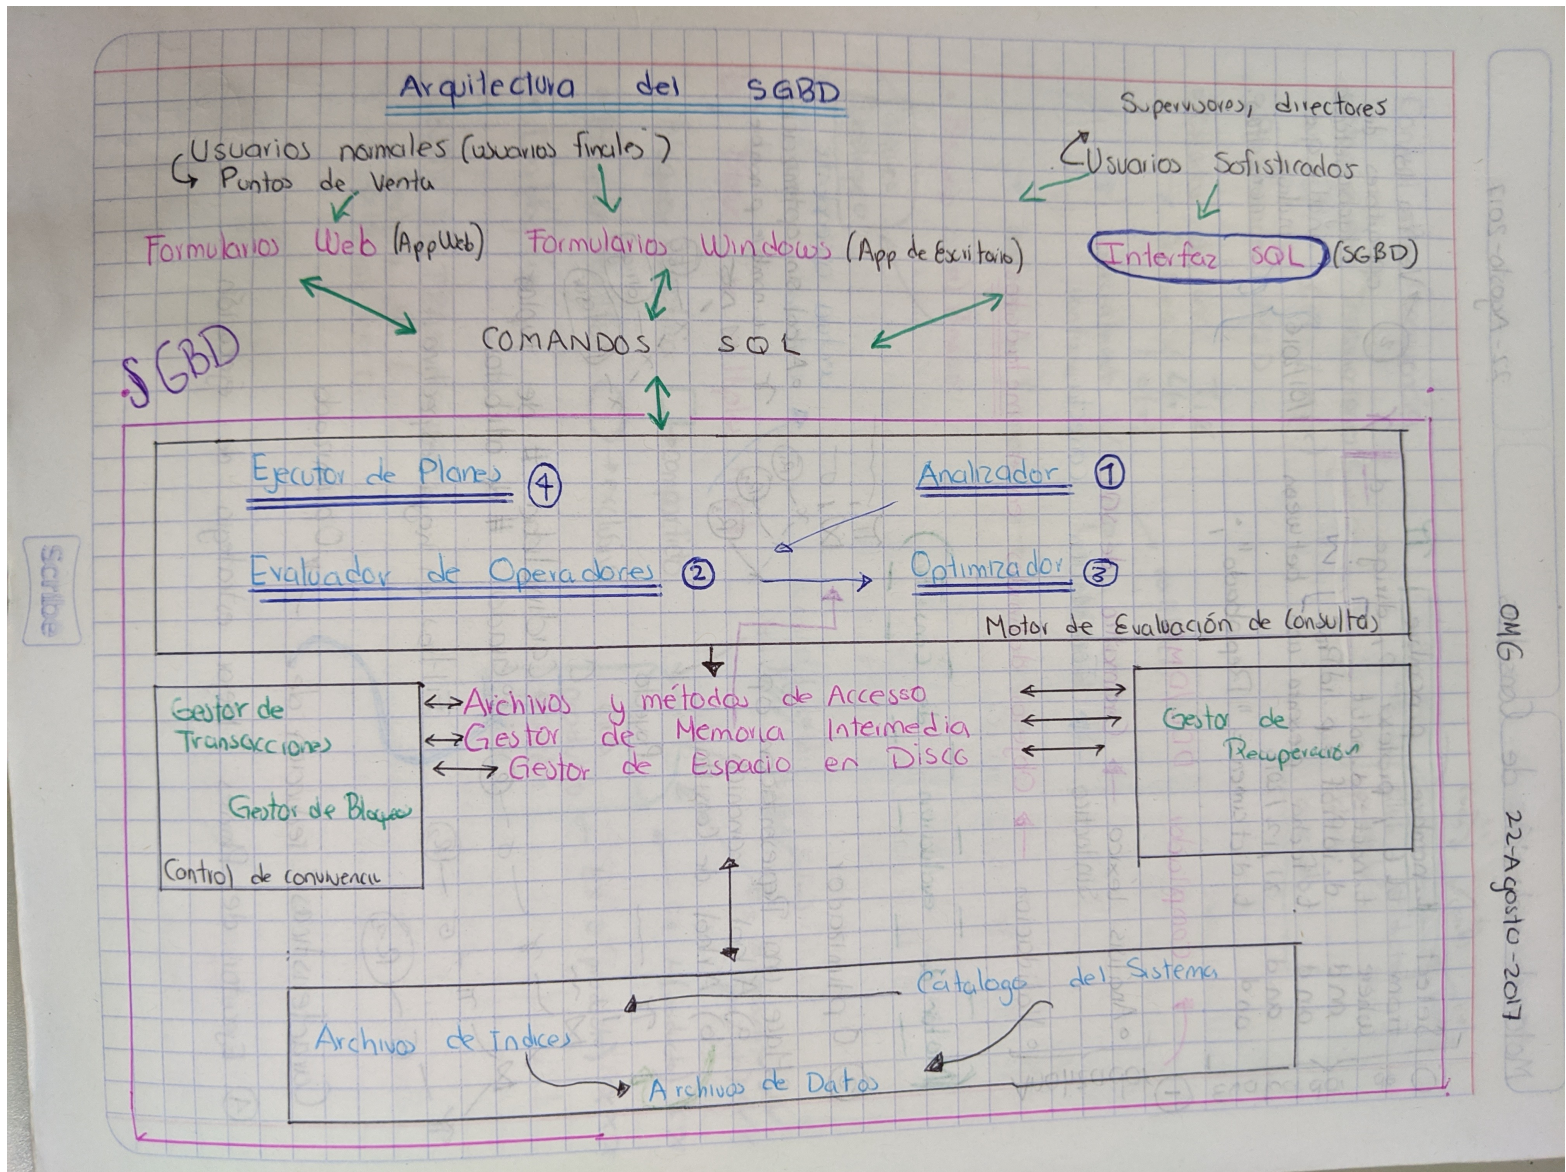 Arquitectura del SGBD
Supervisores, directores
Usuarios normales (usuarios finales)
Puntos de Venta
Usuarios Sofisticados
Formularios Web (App Web) Formularios Windows (App de Escritorio) Interfaz SQL (SGBD)
COMANDOS SQL
SGBD
Ejecutor de Planes 4 Analizador 1
Evaluador de Operadores 2 Optimizador 3
Motor de Evaluación de Consultas
Gestor de
Transacciones
Gestor de Bloqueo
Control de
Archivos y métodos de Accesso
Gestor de Memoria Intermedia
Gestor de Espacio en Disco
Gestor de
Recuperación
Cátalogo del Sistema
Archivos de Indices
Archivos de Datos
Scribe
OMG
22-Agosto-2017